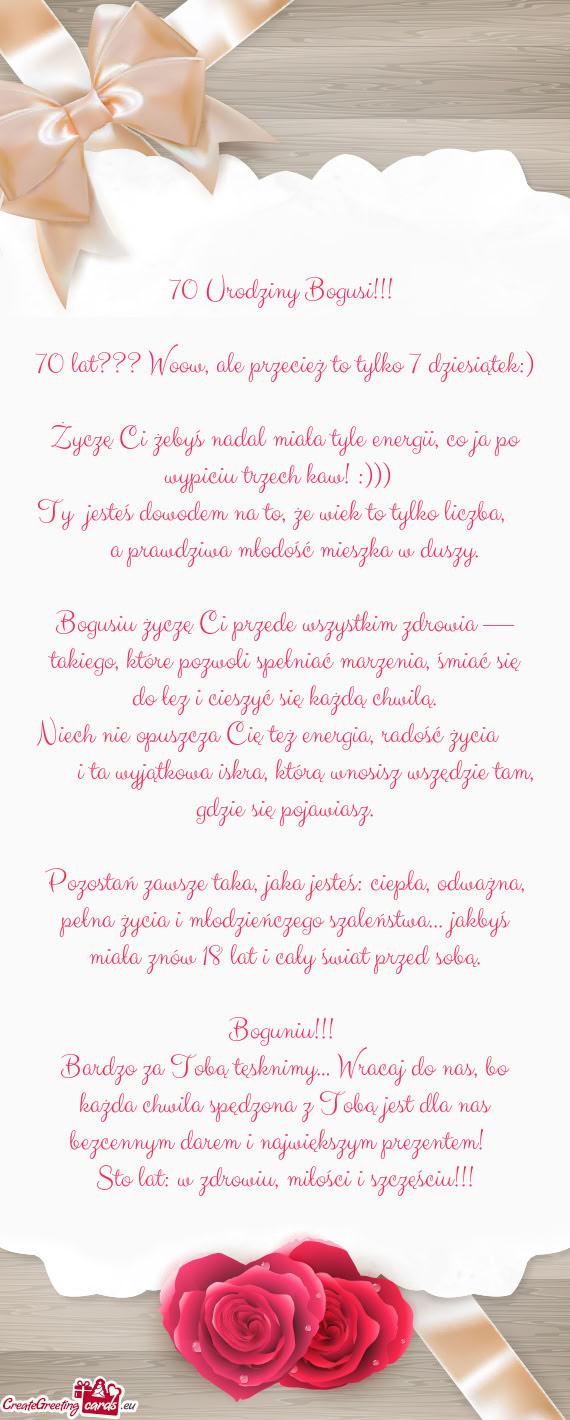 70 Urodziny Bogusi!!!
70 lat??? Woow, ale przecież to tylko 7 dziesiątek:)
Życzę Ci żebyś nadal miała tyle energii, co ja po
wypiciu trzech kaw! :)))
Ty jesteś dowodem na to, że wiek to tylko liczba,
a prawdziwa młodość mieszka w duszy.
Bogusiu życzę Ci przede wszystkim zdrowia —
takiego, które pozwoli spełniać marzenia, śmiać się
do łez i cieszyć się każdą chwilą.
Niech nie opuszcza Cię też energia, radość życia
i ta wyjątkowa iskra, którą wnosisz wszędzie tam,
gdzie się pojawiasz.
Pozostań zawsze taka, jaka jesteś: ciepła, odważna,
pełna życia i młodzieńczego szaleństwa... jakbyś
miała znów 18 lat i cały świat przed sobą.
Boguniu!!!
Bardzo za Tobą tęsknimy... Wracaj do nas, bo
każda chwila spędzona z Tobą jest dla nas
bezcennym darem i największym prezentem!
Sto lat: w zdrowiu, miłości i szczęściu!!!
CreateGreeting cards .eu